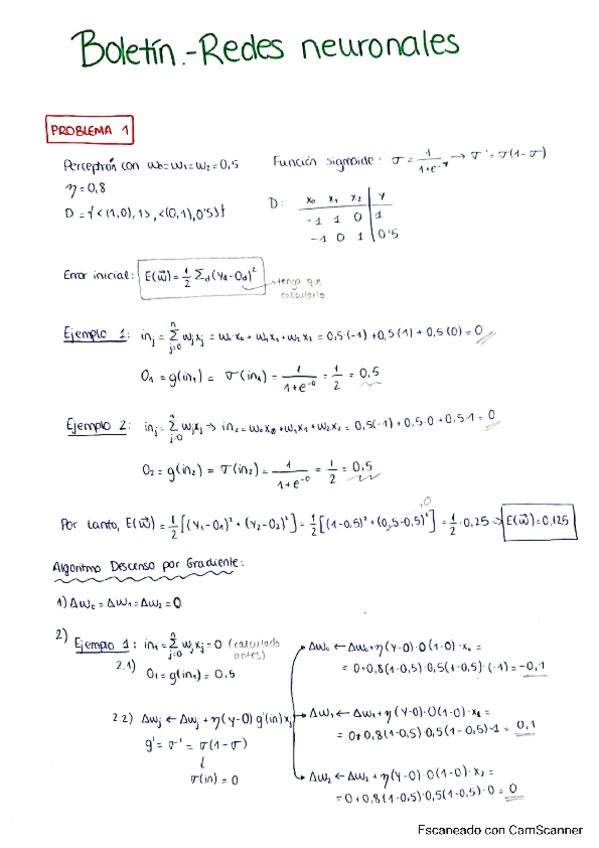 Boletín.-Redes neuronales
PROBLEMA 1
Perceptrón con w0=w1=w2=0,5
η=0,8
D={<(1,0),1>,<(0,1),0'5>}
Función sigmoide: σ = 1/(1+e^-x) → σ'=σ(1-σ)
D: x0 x1 x2 y
-1 1 0 1
-1 0 1 0'5
Error inicial: E(w⃗)= 1/2 Σd(yd-Od)²
→ tengo que
calcularlo
Ejemplo 1: inj = Σ(j=0, n) wjxj = w0·x0 + w1x1 + w2x2 = 0,5(-1)+0,5(1)+0,5(0)=0
O1 = g(in1) = σ(in1) = 1/(1+e^-0) = 1/2 = 0,5
Ejemplo 2: inj = Σ(j=0, n) wjxj → in2 = w0x0+w1x1+w2x2 = 0,5(-1)+0,5·0+0,5·1=0
O2 = g(in2) = σ(in2) = 1/(1+e^-0) = 1/2 = 0,5
Por tanto, E(w⃗)= 1/2 [(y1-O1)²+(y2-O2)²] = 1/2 [(1-0,5)²+(0,5-0,5)²] = 1/2·0,25 ⇒ E(w⃗)=0,125
Algoritmo Descenso por Gradiente:
1) Δw0=Δw1=Δw2=0
2) Ejemplo 1: in1 = Σ(j=0, n) wjxj=0 (calculado
antes)
2.1) O1=g(in1) = 0,5
2.2) Δwj ← Δwj + η(y-O) g'(in)xj
g'=σ'=σ(1-σ)
↓
σ(in)=0
Δw0 ← Δw0+η(y-O)·O(1-O)·x0 =
= 0+0,8(1-0,5)·0,5(1-0,5)·(-1)=-0,1
Δw1 ← Δw1+η(y-O)·O(1-O)·x1 =
= 0+0,8(1-0,5)·0,5(1-0,5)·1= 0,1
Δw2 ← Δw2+η(y-O)·O(1-O)·x2 =
= 0+0,8(1-0,5)·0,5(1-0,5)·0 = 0
Escaneado con CamScanner